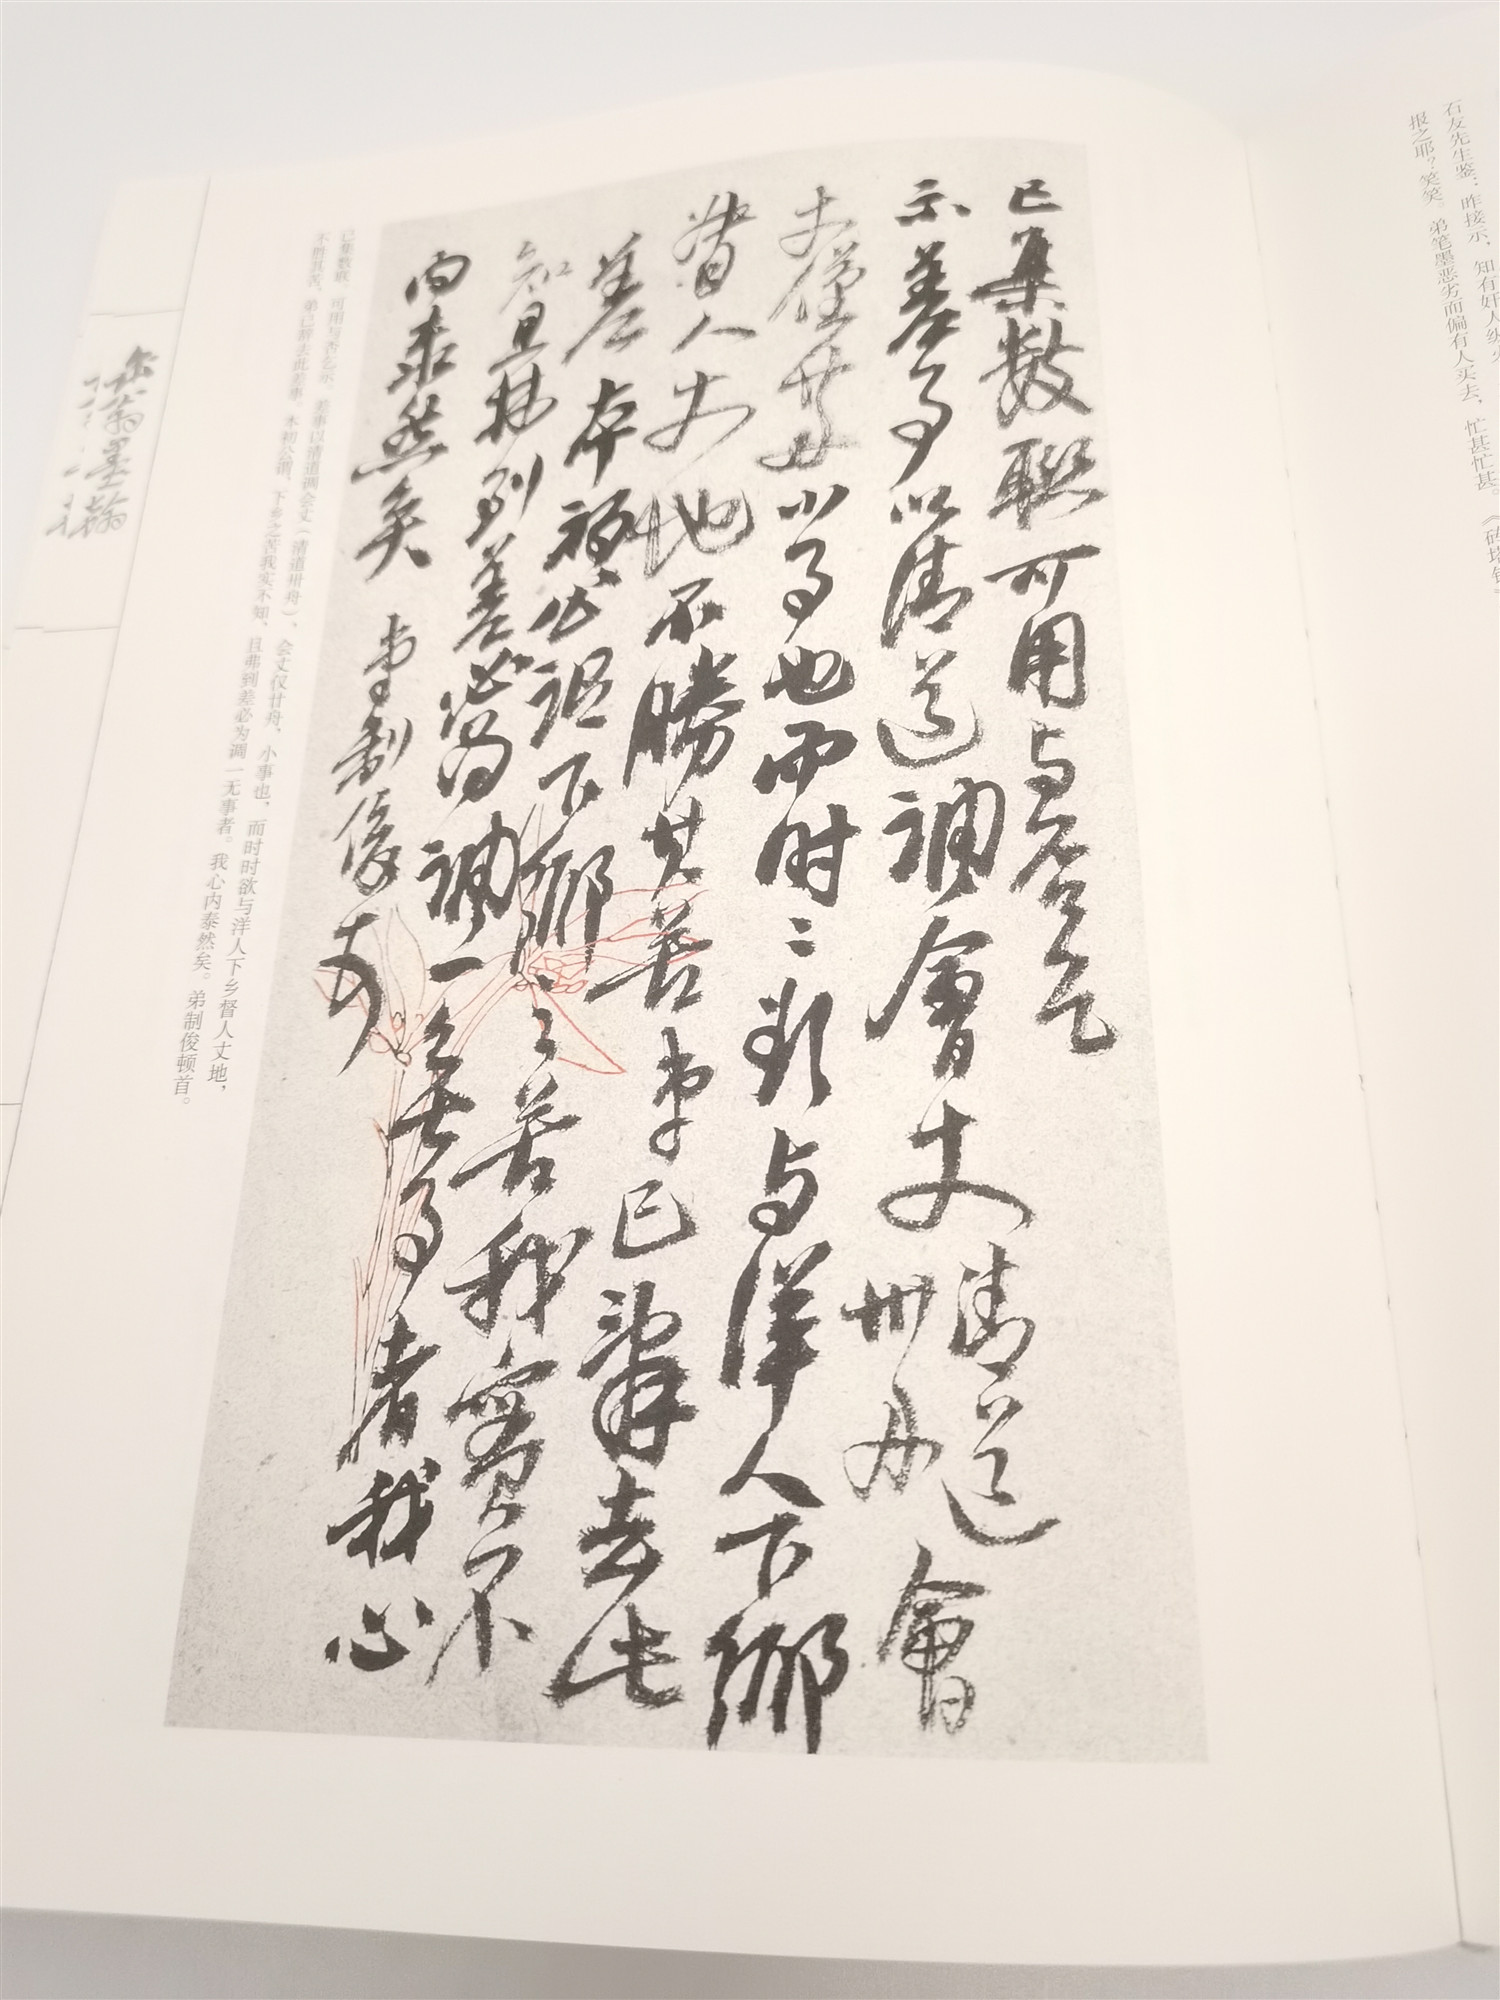 石友先生鉴：昨接示，知有奸人纵火
报之耶？笑笑。弟笔墨恶劣而偏有人买去，忙甚忙甚。《砖塔铭》
已集数联可用与否乞
示差事以清道调会丈清道会
丈仅廿舟小事也而时时欲与洋人下乡
督人丈地不胜其苦弟已辞去此
差本初公谓下乡之苦我实不
知且弗到差必为调一无事者我心
内泰然矣弟制俊顿首
卅舟
已集数联，可用与否乞示。差事以清道调会丈（清道卅舟），会丈仅廿舟，小事也，而时时欲与洋人下乡督人丈地，
不胜其苦。弟已辞去此差事。本初公谓，下乡之苦我实不知，且弗到差必为调一无事者。我心内泰然矣。弟制俊顿首。
墨翰